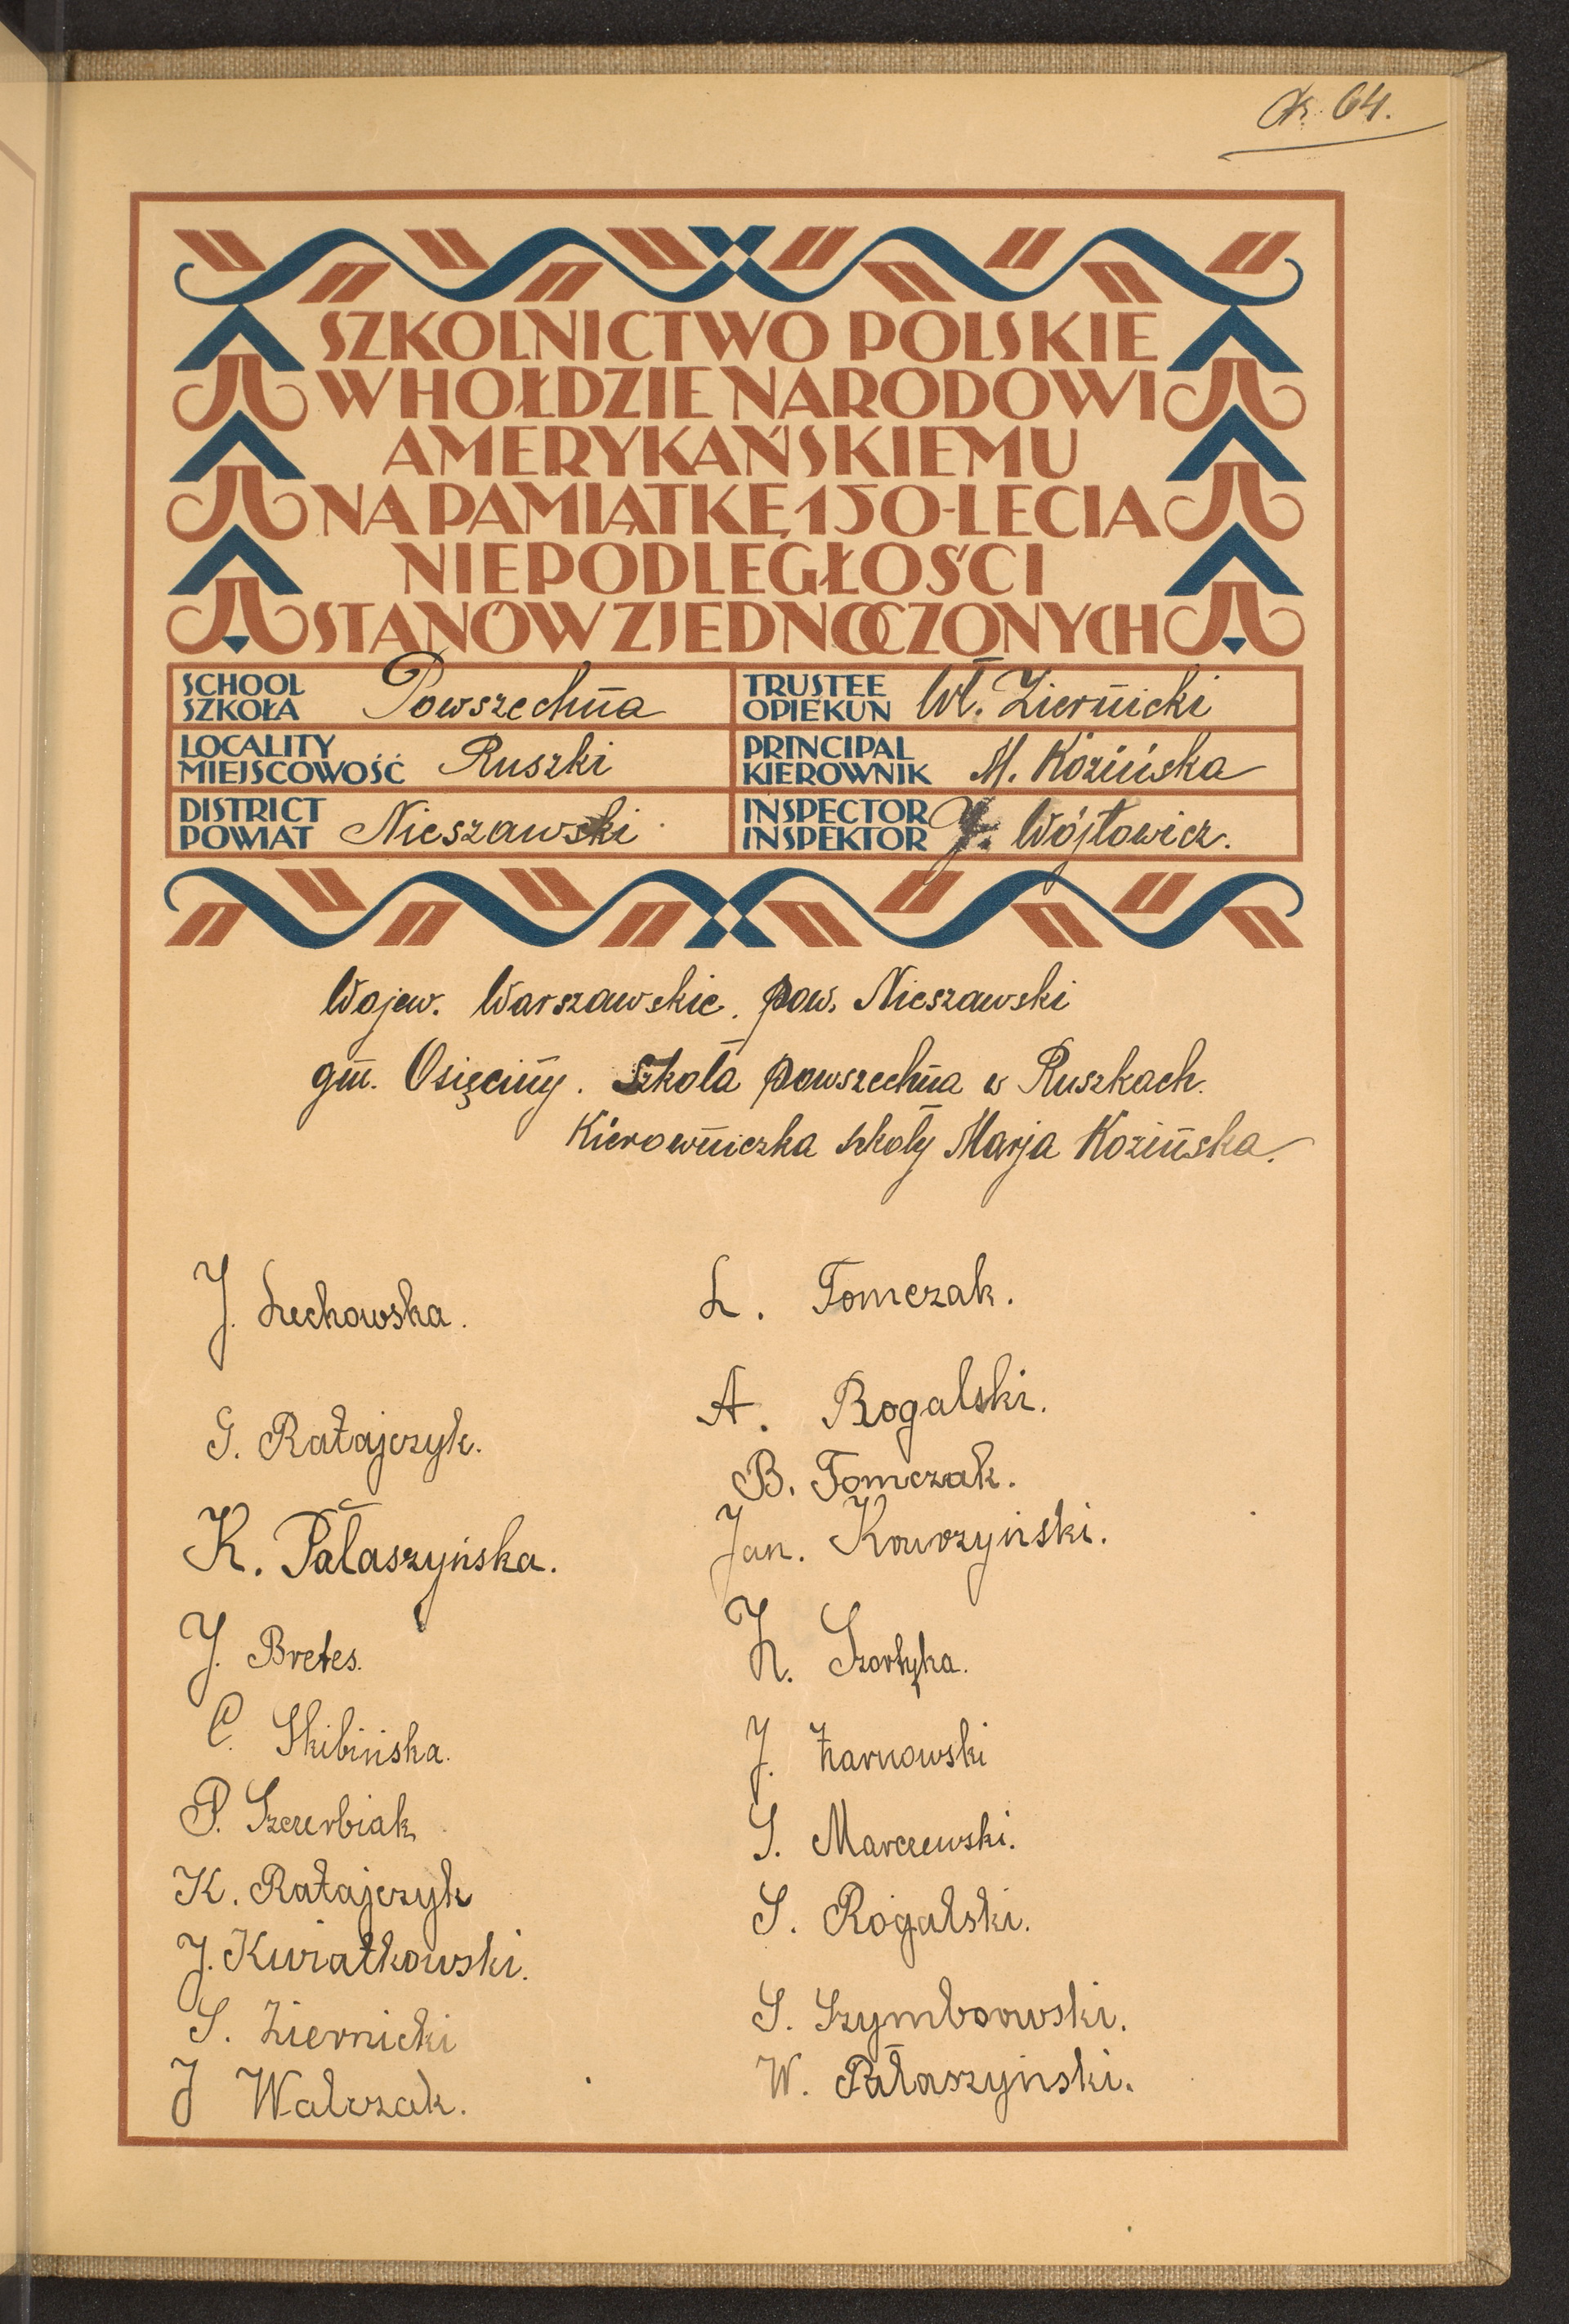 64.
SZKOLNICTWO POLSKIE
W HOŁDZIE NARODOWI
AMERYKAŃSKIEMU
NA PAMIĄTKĘ 150-LECIA
NIEPODLEGŁOŚCI
STANÓW ZJEDNOCZONYCH
SCHOOL
SZKOŁA Powszechna
TRUSTEE
OPIEKUN Wł. Ziernicki
LOCALITY
MIEJSCOWOŚĆ Ruszki
PRINCIPAL
KIEROWNIK M. Kozińska
DISTRICT
POWIAT Nieszawski
INSPECTOR
INSPEKTOR Wójtowicz.
Wojew. Warszawskie. pow. Nieszawski
gm. Osięciny. Szkoła powszechna w Ruszkach.
Kierowniczka szkoły Marja Kozińska.
J. Lechowska.
G. Ratajczyk.
K. Pałaszyńska.
J. Bretes.
C. Skibińska.
P. Szczerbiak
K. Ratajczyk
J. Kwiatkowski.
S. Ziernicki
J Walczak.
L. Tomczak.
A. Rogalski.
B. Tomczak.
Jan.
Szortyka.
J. Żarnowski
S. Marczewski.
S. Rogalski.
S. Szymborwski.
W. Pałaszyński.